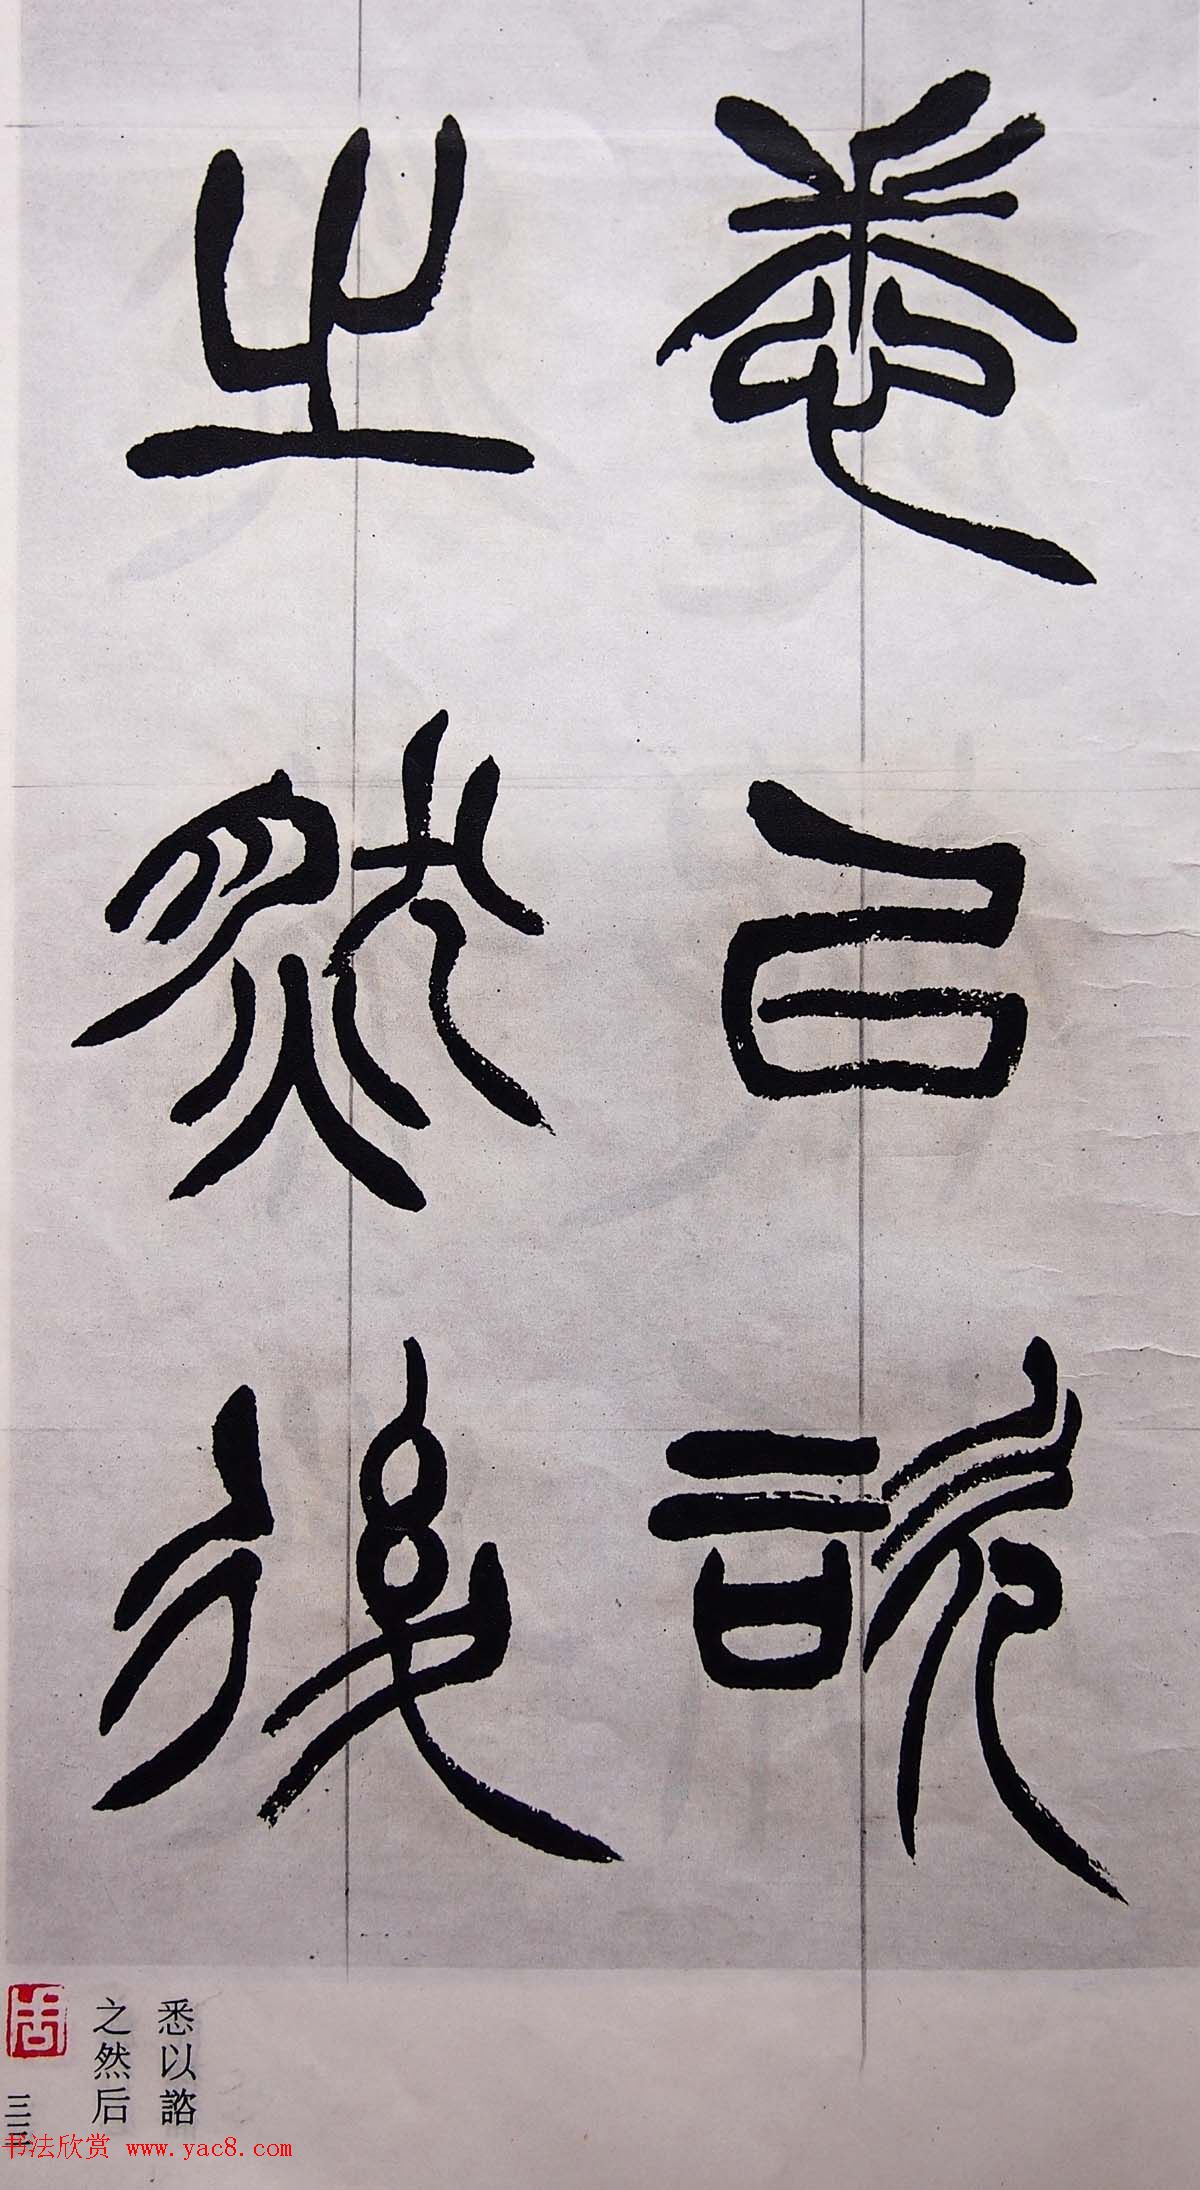 悉以諮
之然後
悉以諮
之然后
三三
书法欣赏 www.yac8.com